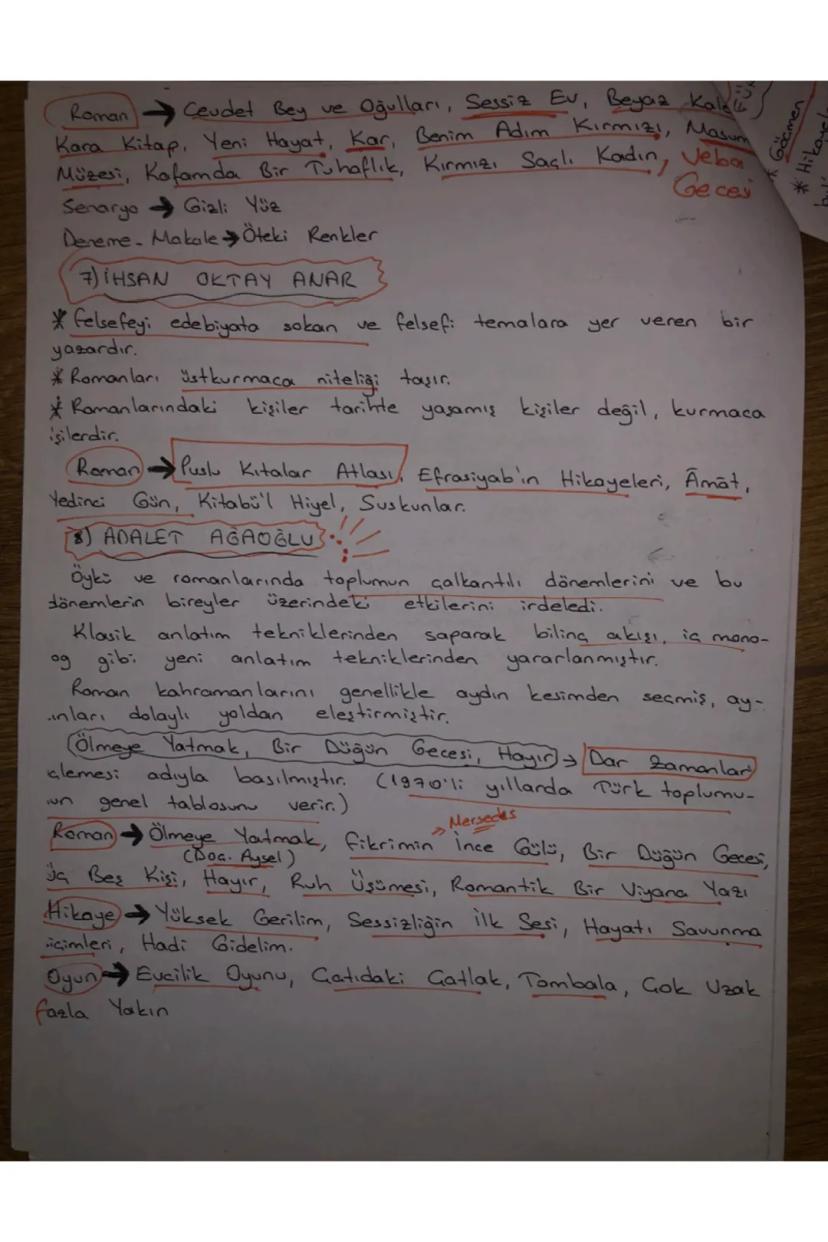 Roman → Cevdet Bey ve Oğulları, Sessiz Ev, Beyaz Kale
Kara Kitap, Yeni Hayat, Kar, Benim Adım Kırmızı, Masum
Müzesi, Kafamda Bir Tuhaflık, Kırmızı Saçlı Kadın, Veba
Gecesi
Senaryo → Gizli Yüz
Deneme-Makale → Öteki Renkler
7) İHSAN OKTAY ANAR
* Felsefeyi edebiyata sokan ve felsefi temalara yer veren bir
yazardır.
* Romanları üstkurmaca niteliği taşır.
* Romanlarındaki kişiler tarihte yaşamış kişiler değil, kurmaca
işilerdir.
Roman → Puslu Kıtalar Atlası, Efrasiyab'ın Hikayeleri, Âmât,
Yedinci Gün, Kitabü'l Hiyel, Suskunlar.
8) ADALET AĞAOĞLU
Öykü ve romanlarında toplumun çalkantılı dönemlerini ve bu
dönemlerin bireyler üzerindeki etkilerini irdeledi.
Klasik anlatım tekniklerinden saparak bilinç akışı, iç mono-
og gibi yeni anlatım tekniklerinden yararlanmıştır.
Roman kahramanlarını genellikle aydın kesimden seçmiş, ay-
ınları dolaylı yoldan eleştirmiştir.
Ölmeye Yatmak, Bir Düğün Gecesi, Hayır → Dar Zamanlar
çlemesi adıyla basılmıştır. (1970'li yıllarda Türk toplumu-
un genel tablosunu verir.)
Mersedes
Roman → Ölmeye Yatmak, Fikrimin İnce Gülü, Bir Düğün Gecesi,
(Doç. Aysel)
Üç Beş Kişi, Hayır, Ruh Üşümesi, Romantik Bir Viyana Yazı
Hikaye → Yüksek Gerilim, Sessizliğin İlk Sesi, Hayatı Savunma
içimleri, Hadi Gidelim.
Oyun → Evcilik Oyunu, Çatıdaki Çatlak, Tombala, Çok Uzak
fazla Yakın
* Göçmen
* Hikayel